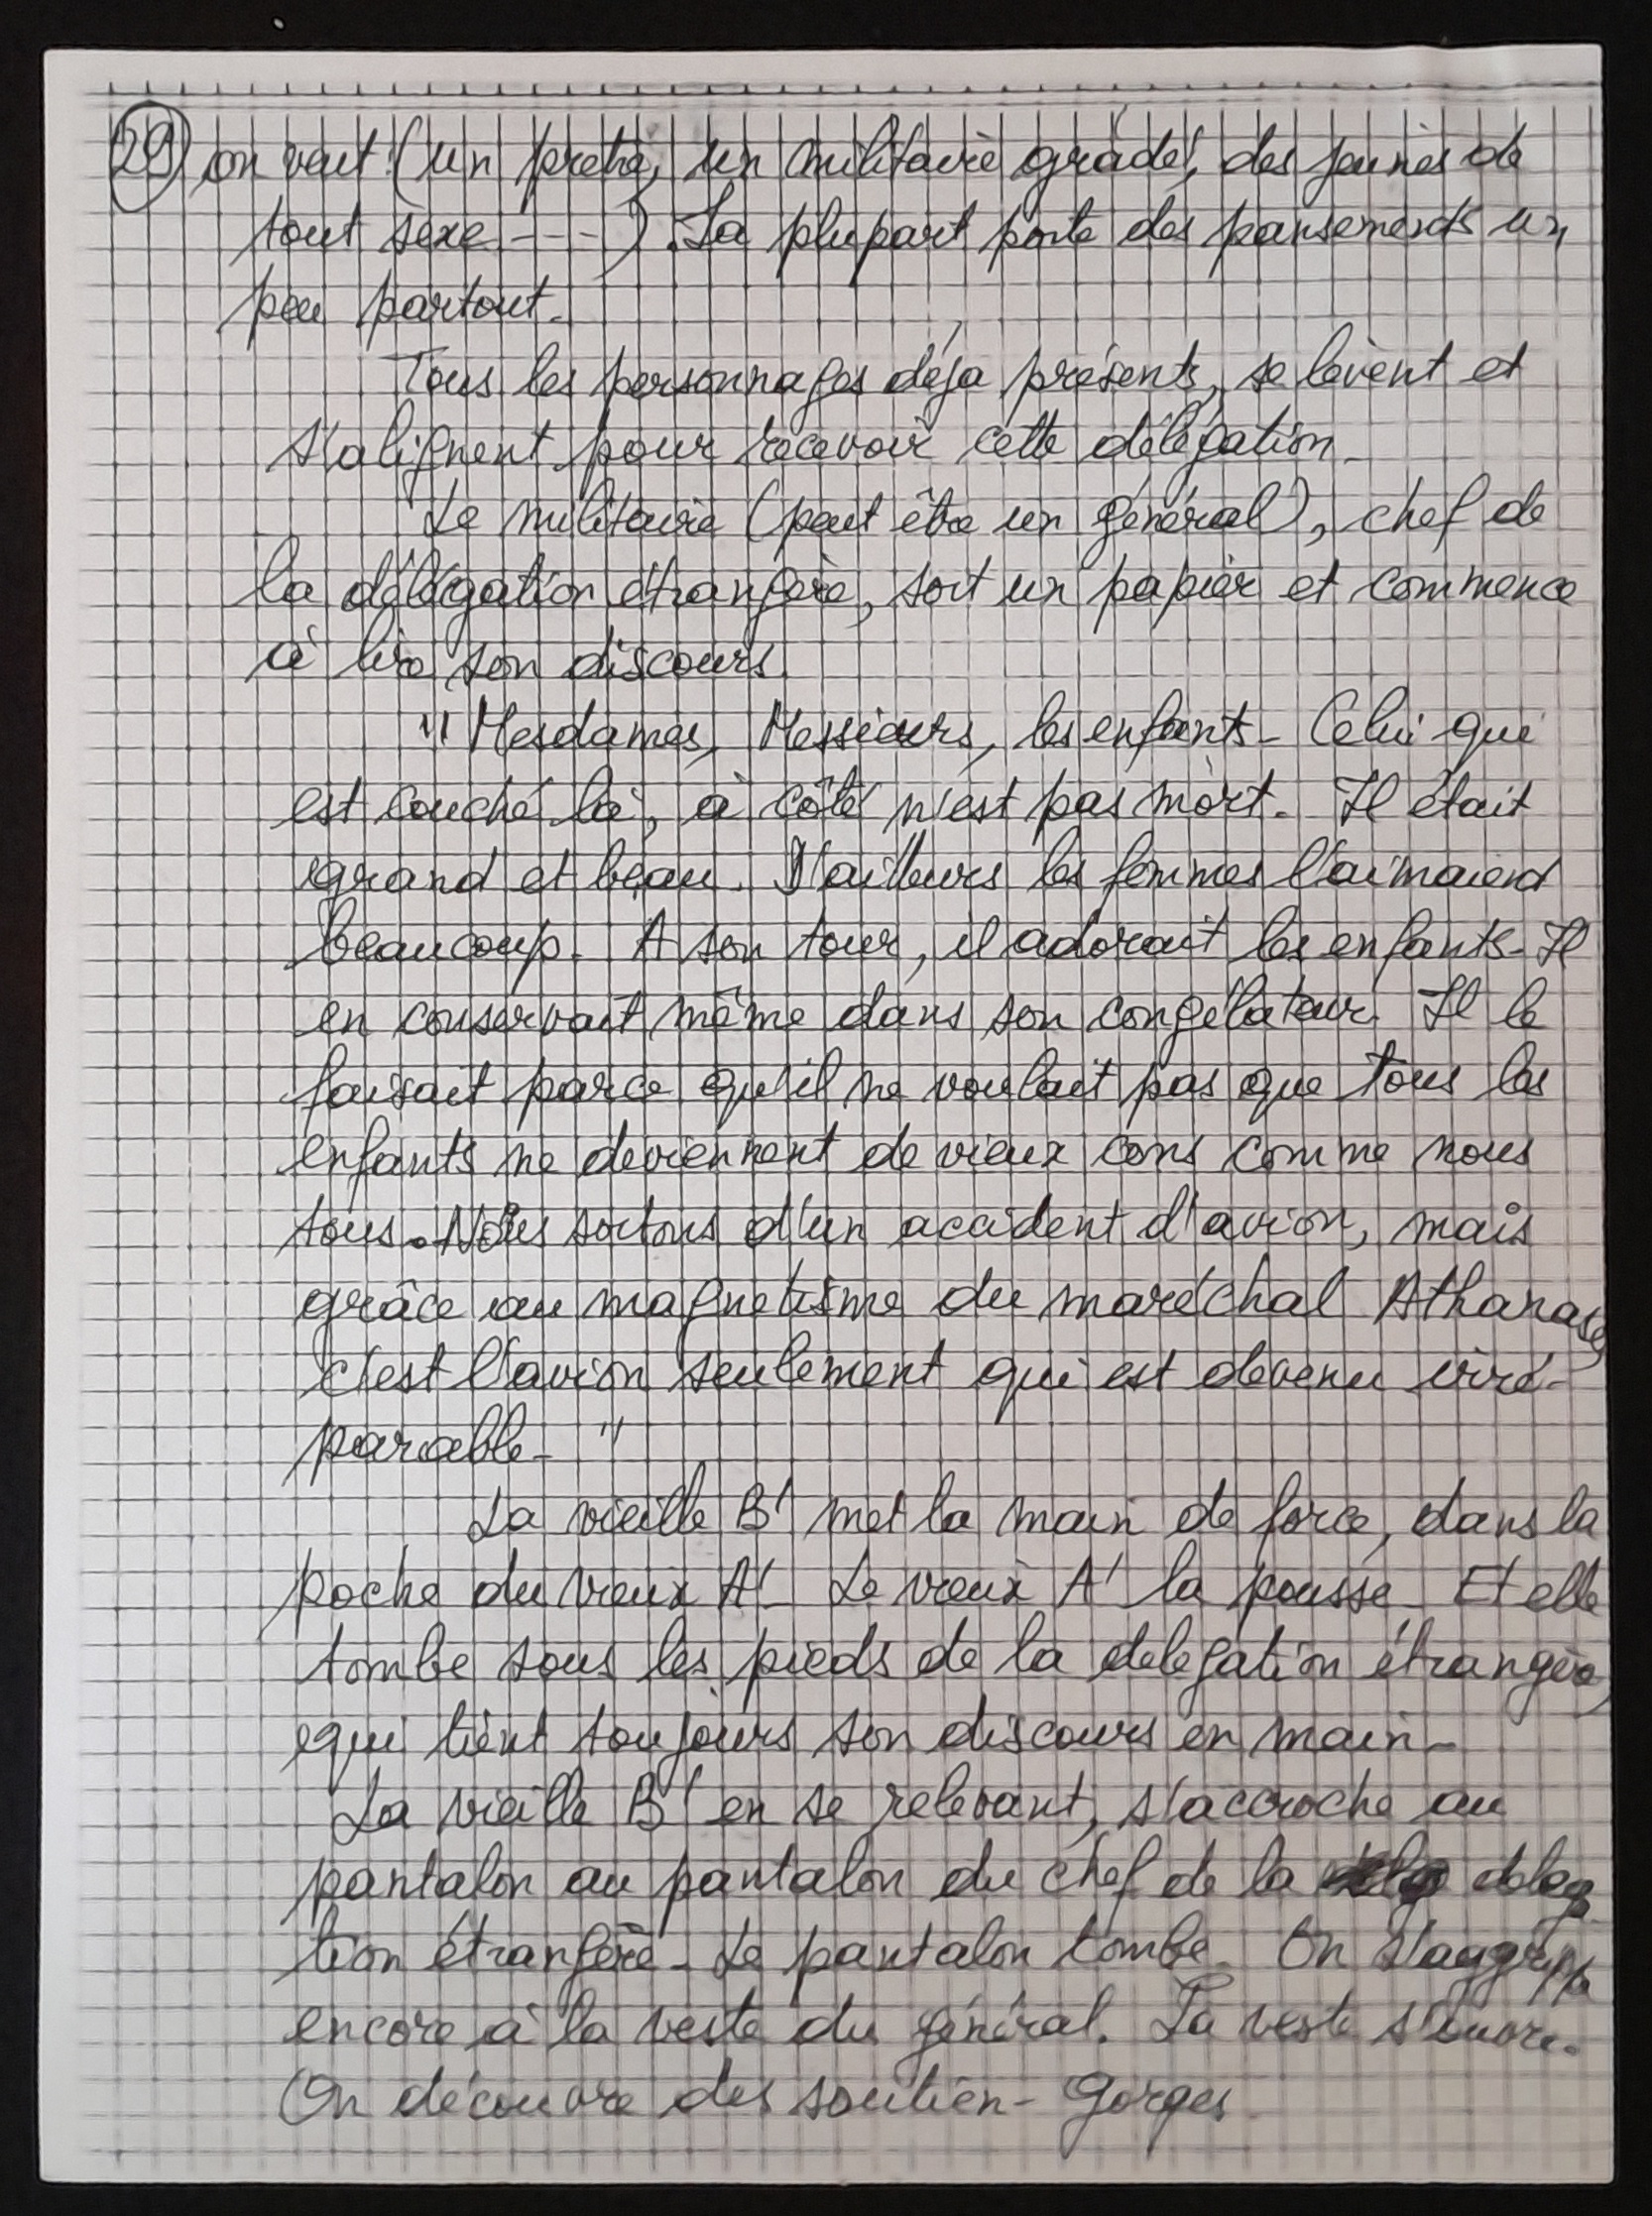 29 on veut (un prêtre, un militaire gradé, des jeunes de
tout sexe ---). La plupart porte des pansements un
peu partout.
Tous les personnages déjà présents, se lèvent et
s'alignent pour recevoir cette délégation.
Le militaire (peut être un général), chef de
la délégation étrangère, sort un papier et commence
à lire son discours.
" Mesdames, Messieurs, les enfants - Celui qui
est couché là, à côté n'est pas mort. Il était
grand et beau. D'ailleurs les femmes l'aimaient
beaucoup. A son tour, il adorait les enfants - Il
en conservait même dans son congélateur. Il le
faisait parce qu'il ne voulait pas que tous les
enfants ne deviennent de vieux cons comme nous
tous. Nous sortons d'un accident d'avion, mais
grâce au magnétisme du maréchal Athanase,
c'est l'avion seulement qui est devenu irré-
parable - "
La vieille B' met la main de force, dans la
poche du vieux A' - Le vieux A' la pousse - Et elle
tombe sous les pieds de la delegation étrangère,
qui tient toujours son discours en main -
La vieille B' en se relevant, s'accroche au
pantalon au pantalon du chef de la deleg
tion étrangère - Le pantalon tombe - On s'aggrippe
encore à la veste du général. La veste s'ouvre.
On découvre des soutien-gorges